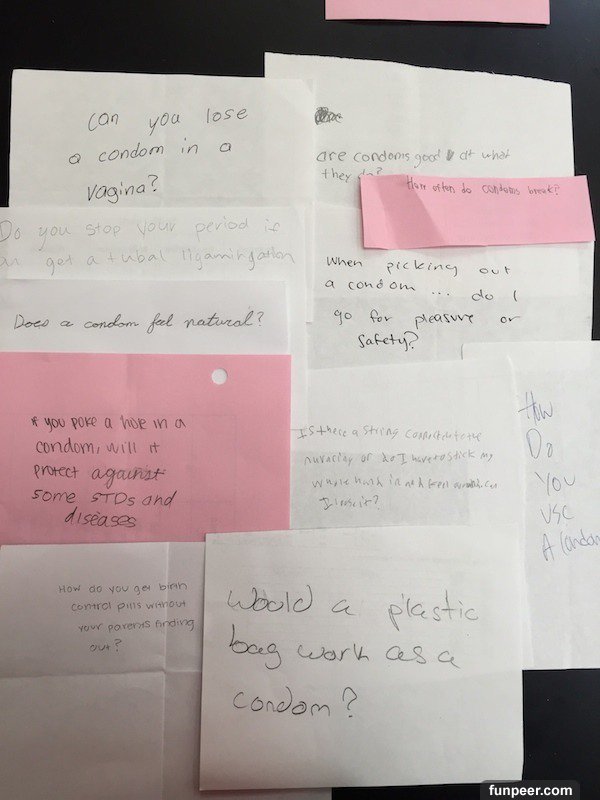 Can you lose
a condom in a
vagina?
are condoms good at what
they do?
How often do condoms break?
Do you stop your period if
get a tubal
When picking out
a condom ... do I
go for pleasure or
safety?
Does a condom feel natural?
If you poke a hole in a
condom, will it
protect against
some STDs and
diseases
Is there a string connected to the
or do I have to stick my
whole hand in and feel around. Can
I lose it?
How
Do
You
USE
A Condom
How do you get birth
control pills without
your parents finding
out?
Would a plastic
bag work as a
condom?
funpeer.com